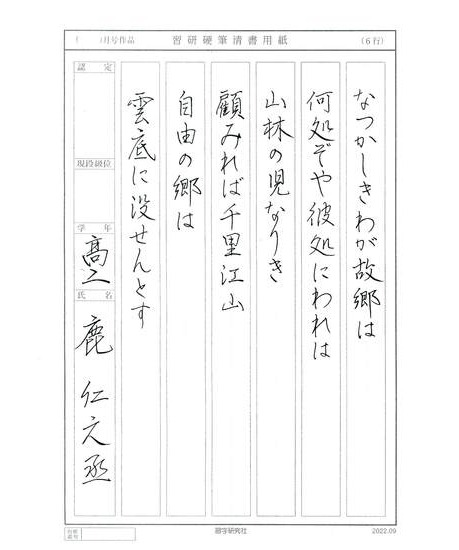 ( )月号作品 習研硬筆清書用紙 (6行)
なつかしきわが故郷は
何処ぞや彼処にわれは
山林の児なりき
顧みれば千里江山
自由の郷は
雲底に没せんとす
認定
現段級位
学年
高二
氏名
鹿 仁之丞
習字研究社
2022.09